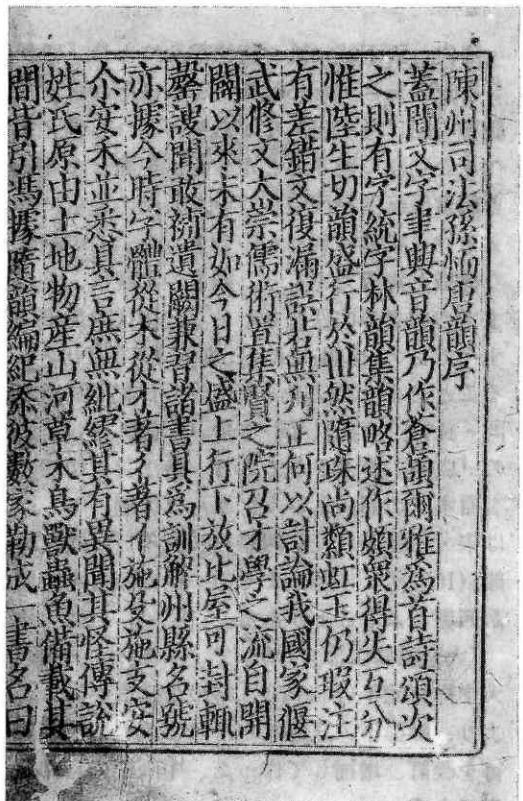 陳州司法孫愐唐韻序
蓋聞文字聿興音韻乃作蒼頡爾雅爲首詩頌次
之則有字統字林韻集韻略述作頗衆得失互分
惟陸生切韻盛行於世然隨珠尚纇虹玉仍瑕注
有差錯文復漏誤若無刋正何以討論我國家偃
武修文大崇儒術置集賢之院召才學之流自開
闢以來未有如今日之盛上行下放比屋可封輒
罄謏聞敢補遺闕兼習諸書具爲訓解州縣名號
亦據今時字體從木從才著彳著亻施殳施攴安
尒安禾並悉具言庶無紕繆其有異聞其怪傳說
姓氏原由土地物產山河草木鳥獸蟲魚備載其
間皆引馮據隨韻編紀添彼數家勒成一書名曰